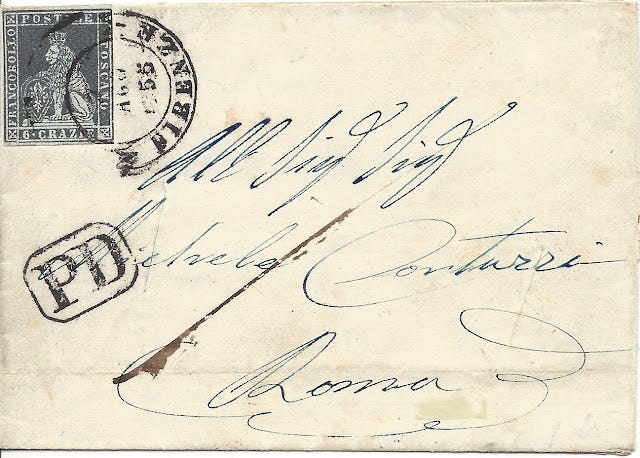 FRANCOBOLLO POSTALE TOSCANO
6 · CRAZIE
FIRENZE
AGO
1855
PD
All Sig.r Sig.r
Michele Conturri
Roma